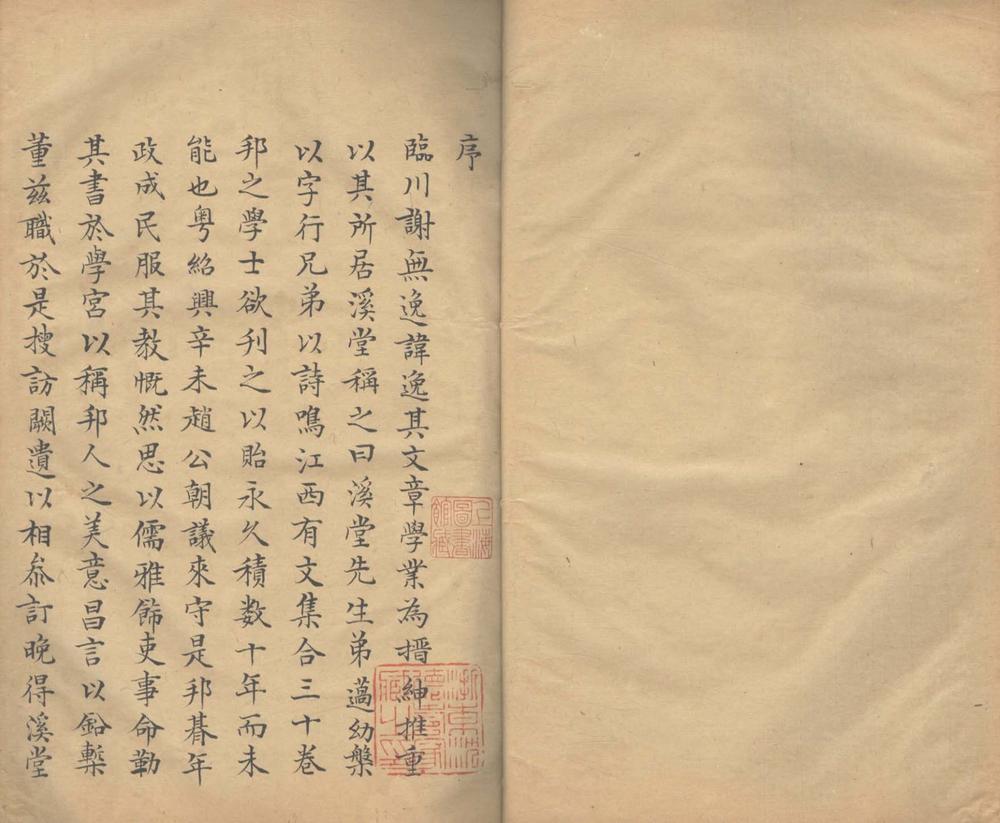 序
臨川謝無逸諱逸其文章學業為搢紳推重
以其所居溪堂稱之曰溪堂先生弟薖幼槃
以字行兄弟以詩鳴江西有文集合三十卷
邦之學士欲刊之以貽永久積数十年而未
能也粤紹興辛未趙公朝議來守是邦朞年
政成民服其教慨然思以儒雅飾吏事命勒
其書於學宮以稱邦人之美意昌言以鉛槧
董兹職於是搜訪闕遺以相叅訂晚得溪堂
上海圖書館藏